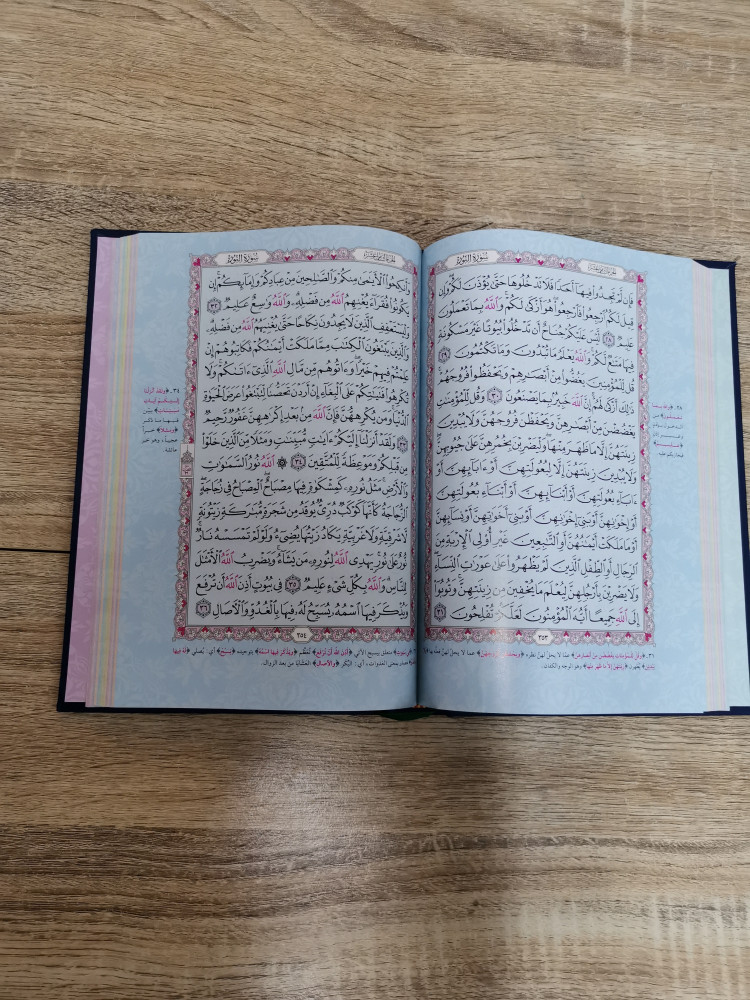 سُورَةُ النُّورِ
فَإِن لَّمْ تَجِدُوا۟ فِيهَآ أَحَدًا فَلَا تَدْخُلُوهَا حَتَّىٰ يُؤْذَنَ لَكُمْ وَإِن
قِيلَ لَكُمُ ٱرْجِعُوا۟ فَٱرْجِعُوا۟ هُوَ أَزْكَىٰ لَكُمْ وَٱللَّهُ بِمَا تَعْمَلُونَ
عَلِيمٌ ٢٨ لَّيْسَ عَلَيْكُمْ جُنَاحٌ أَن تَدْخُلُوا۟ بُيُوتًا غَيْرَ مَسْكُونَةٍ
فِيهَا مَتَٰعٌ لَّكُمْ وَٱللَّهُ يَعْلَمُ مَا تُبْدُونَ وَمَا تَكْتُمُونَ ٢٩
قُل لِّلْمُؤْمِنِينَ يَغُضُّوا۟ مِنْ أَبْصَٰرِهِمْ وَيَحْفَظُوا۟ فُرُوجَهُمْ
ذَٰلِكَ أَزْكَىٰ لَهُمْ إِنَّ ٱللَّهَ خَبِيرٌۢ بِمَا يَصْنَعُونَ ٣٠ وَقُل لِّلْمُؤْمِنَٰتِ
يَغْضُضْنَ مِنْ أَبْصَٰرِهِنَّ وَيَحْفَظْنَ فُرُوجَهُنَّ وَلَا يُبْدِينَ
زِينَتَهُنَّ إِلَّا مَا ظَهَرَ مِنْهَا وَلْيَضْرِبْنَ بِخُمُرِهِنَّ عَلَىٰ جُيُوبِهِنَّ
وَلَا يُبْدِينَ زِينَتَهُنَّ إِلَّا لِبُعُولَتِهِنَّ أَوْ ءَابَآئِهِنَّ أَوْ
ءَابَآءِ بُعُولَتِهِنَّ أَوْ أَبْنَآئِهِنَّ أَوْ أَبْنَآءِ بُعُولَتِهِنَّ
أَوْ إِخْوَٰنِهِنَّ أَوْ بَنِىٓ إِخْوَٰنِهِنَّ أَوْ بَنِىٓ أَخَوَٰتِهِنَّ أَوْ نِسَآئِهِنَّ
أَوْ مَا مَلَكَتْ أَيْمَٰنُهُنَّ أَوِ ٱلتَّٰبِعِينَ غَيْرِ أُو۟لِى ٱلْإِرْبَةِ مِنَ
ٱلرِّجَالِ أَوِ ٱلطِّفْلِ ٱلَّذِينَ لَمْ يَظْهَرُوا۟ عَلَىٰ عَوْرَٰتِ ٱلنِّسَآءِ
وَلَا يَضْرِبْنَ بِأَرْجُلِهِنَّ لِيُعْلَمَ مَا يُخْفِينَ مِن زِينَتِهِنَّ وَتُوبُوٓا۟
إِلَى ٱللَّهِ جَمِيعًا أَيُّهَ ٱلْمُؤْمِنُونَ لَعَلَّكُمْ تُفْلِحُونَ ٣١
٣٥٣
سُورَةُ النُّورِ
وَأَنكِحُوا۟ ٱلْأَيَٰمَىٰ مِنكُمْ وَٱلصَّٰلِحِينَ مِنْ عِبَادِكُمْ وَإِمَآئِكُمْ إِن
يَكُونُوا۟ فُقَرَآءَ يُغْنِهِمُ ٱللَّهُ مِن فَضْلِهِۦ وَٱللَّهُ وَٰسِعٌ عَلِيمٌ ٣٢
وَلْيَسْتَعْفِفِ ٱلَّذِينَ لَا يَجِدُونَ نِكَاحًا حَتَّىٰ يُغْنِيَهُمُ ٱللَّهُ مِن فَضْلِهِۦ
وَٱلَّذِينَ يَبْتَغُونَ ٱلْكِتَٰبَ مِمَّا مَلَكَتْ أَيْمَٰنُكُمْ فَكَاتِبُوهُمْ إِنْ
عَلِمْتُمْ فِيهِمْ خَيْرًا وَءَاتُوهُم مِّن مَّالِ ٱللَّهِ ٱلَّذِىٓ ءَاتَىٰكُمْ وَلَا
تُكْرِهُوا۟ فَتَيَٰتِكُمْ عَلَى ٱلْبِغَآءِ إِنْ أَرَدْنَ تَحَصُّنًا لِّتَبْتَغُوا۟ عَرَضَ ٱلْحَيَوٰةِ
ٱلدُّنْيَا وَمَن يُكْرِههُّنَّ فَإِنَّ ٱللَّهَ مِنۢ بَعْدِ إِكْرَٰهِهِنَّ غَفُورٌ رَّحِيمٌ
٣٣ وَلَقَدْ أَنزَلْنَآ إِلَيْكُمْ ءَايَٰتٍ مُّبَيِّنَٰتٍ وَمَثَلًا مِّنَ ٱلَّذِينَ خَلَوْا۟
مِن قَبْلِكُمْ وَمَوْعِظَةً لِّلْمُتَّقِينَ ٣٤ ۞ ٱللَّهُ نُورُ ٱلسَّمَٰوَٰتِ
وَٱلْأَرْضِ مَثَلُ نُورِهِۦ كَمِشْكَوٰةٍ فِيهَا مِصْبَاحٌ ٱلْمِصْبَاحُ فِى زُجَاجَةٍ
ٱلزُّجَاجَةُ كَأَنَّهَا كَوْكَبٌ دُرِّىٌّ يُوقَدُ مِن شَجَرَةٍ مُّبَٰرَكَةٍ زَيْتُونَةٍ
لَّا شَرْقِيَّةٍ وَلَا غَرْبِيَّةٍ يَكَادُ زَيْتُهَا يُضِىٓءُ وَلَوْ لَمْ تَمْسَسْهُ نَارٌ
نُّورٌ عَلَىٰ نُورٍ يَهْدِى ٱللَّهُ لِنُورِهِۦ مَن يَشَآءُ وَيَضْرِبُ ٱللَّهُ ٱلْأَمْثَٰلَ
لِلنَّاسِ وَٱللَّهُ بِكُلِّ شَىْءٍ عَلِيمٌ ٣٥ فِى بُيُوتٍ أَذِنَ ٱللَّهُ أَن تُرْفَعَ
وَيُذْكَرَ فِيهَا ٱسْمُهُۥ يُسَبِّحُ لَهُۥ فِيهَا بِٱلْغُدُوِّ وَٱلْءَاصَالِ ٣٦
٣٥٤